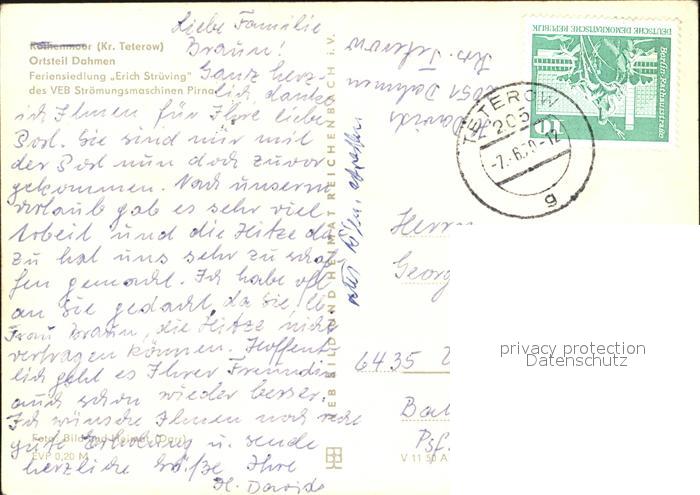 Rothenmoor (Kr. Teterow)
Ortsteil Dahmen
Feriensiedlung „Erich Strüving"
des VEB Strömungsmaschinen Pirna
Liebe Familie
Braun!
Ganz herz-
lich danke
ich Ihnen für Ihre liebe
Post. Sie sind mir mit
der Post nun doch zuvor
gekommen. Nach unserem
Urlaub gab es sehr viel
Arbeit und die Hitze da-
zu hat uns sehr zu schaf-
fen gemacht. Ich habe oft
an Sie gedacht, da Sie, li
Frau Braun, die Hitze nicht
vertragen können. Hoffent-
lich geht es Ihrer Freundin
auch schon wieder besser.
Ich wünsche Ihnen noch recht
gute Erholung u. sende
herzliche Grüße Ihre
H. Davids
Foto: Bild und Heimat
EVP 0,20 M
VEB BILD UND HEIMAT REICHENBACH i. V.
H. Davids
2051 Dahmen
Krs. Teterow
TETEROW
205
-7.-6.80-12
g
DEUTSCHE DEMOKRATISCHE REPUBLIK
Berlin, Rathausstraße
10
Herrn
Georg
6435
Psf.
V 11 50 A
privacy protection
Datenschutz